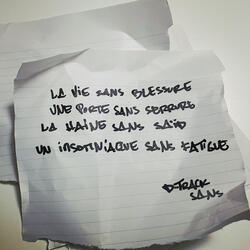 LA VIE SANS BLESSURE
UNE PORTE SANS SERRURE
LA HAINE SANS SAÏD
UN INSOMNIAQUE SANS FATIGUE
D-TRACK
SANS